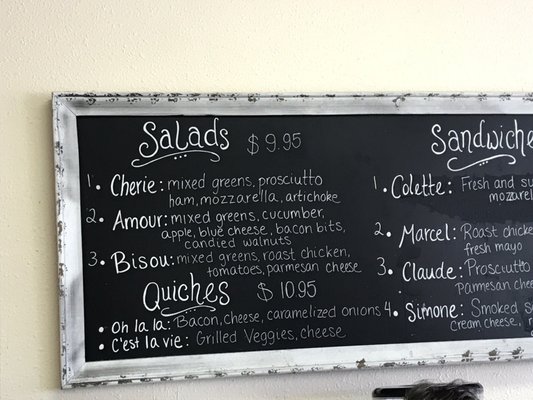 Salads $9.95
1. Cherie: mixed greens, prosciutto
ham, mozzarella, artichoke
2. Amour: mixed greens, cucumber,
apple, blue cheese, bacon bits,
candied walnuts
3. Bisou: mixed greens, roast chicken,
tomatoes, parmesan cheese
Quiches $10.95
• Oh la la: Bacon, cheese, caramelized onions
• C'est la vie: Grilled Veggies, cheese
Sandwiche
1. Colette: Fresh and
mozarel
2. Marcel: Roast chicke
fresh mayo
3. Claude: Prosciutto
Parmesan chee
4. Simone: Smoked
cream cheese,